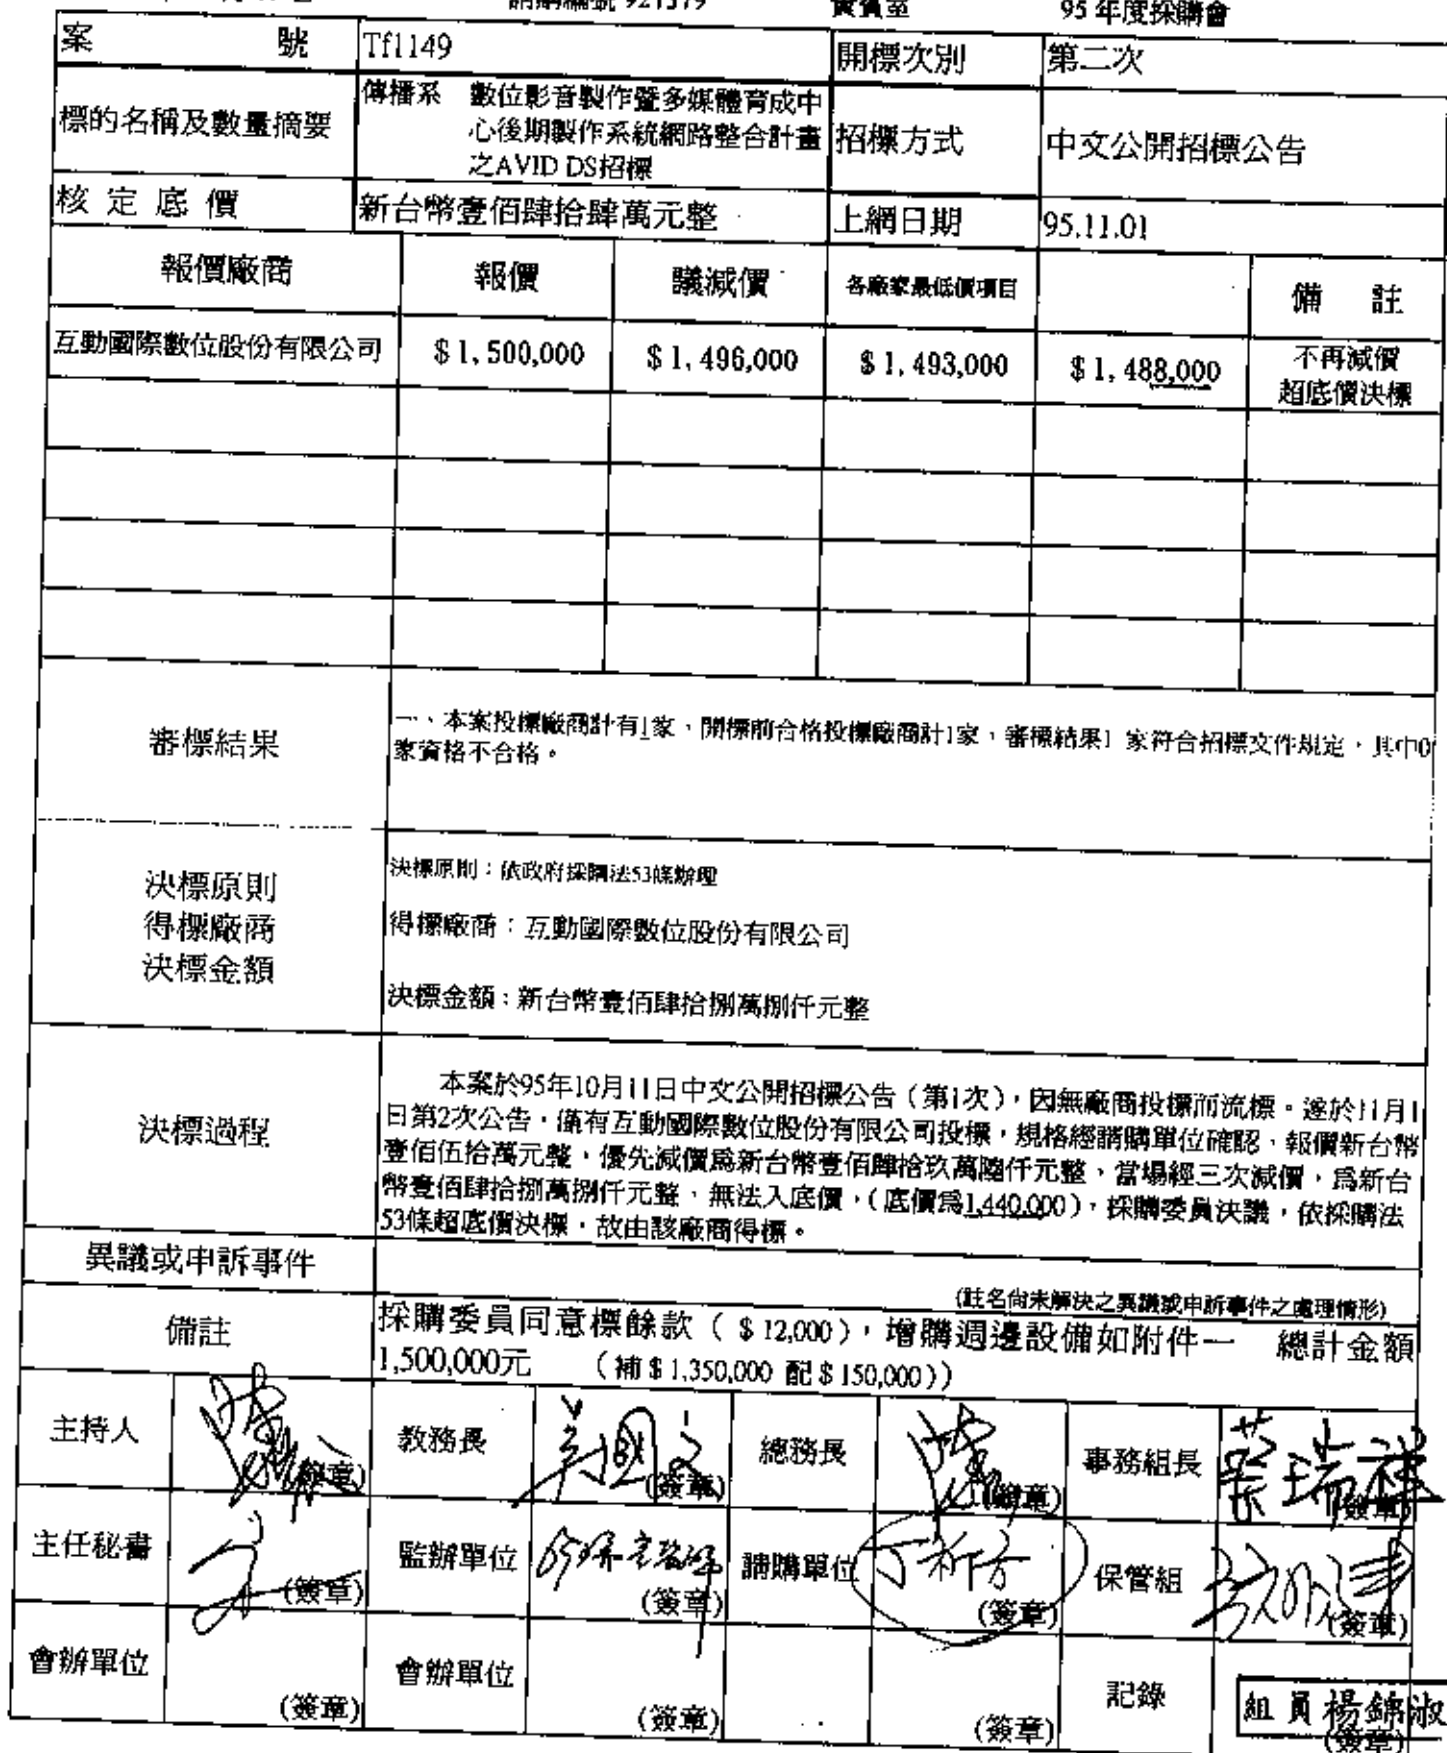 95 年度採購會
案 號 Tf1149 開標次別 第二次
標的名稱及數量摘要 傳播系 數位影音製作暨多媒體育成中
心後期製作系統網路整合計畫
之AVID DS招標
招標方式 中文公開招標公告
核定底價 新台幣壹佰肆拾肆萬元整 上網日期 95.11.01
報價廠商 報價 議減價 各廠家最低價項目 備 註
互動國際數位股份有限公司 $1,500,000 $1,496,000 $1,493,000 $1,488,000 不再減價
超底價決標
審標結果
一、本案投標廠商計有1家，開標前合格投標廠商計1家，審標結果1 家符合招標文件規定，其中0
家資格不合格。
決標原則
得標廠商
決標金額
決標原則：依政府採購法53條辦理
得標廠商：互動國際數位股份有限公司
決標金額：新台幣壹佰肆拾捌萬捌仟元整
決標過程
本案於95年10月11日中文公開招標公告（第1次），因無廠商投標而流標。遂於11月1
日第2次公告，僅有互動國際數位股份有限公司投標，規格經請購單位確認，報價新台幣
壹佰伍拾萬元整，優先減價為新台幣壹佰肆拾玖萬陸仟元整，當場經三次減價，為新台
幣壹佰肆拾捌萬捌仟元整，無法入底價，（底價為1,440,000），採購委員決議，依採購法
53條超底價決標，故由該廠商得標。
異議或申訴事件
(註名尚未解決之異議或申訴事件之處理情形)
備註
採購委員同意標餘款（＄12,000），增購週邊設備如附件一 總計金額
1,500,000元 （補＄1,350,000 配＄150,000））
主持人 (簽章) 教務長 (簽章) 總務長 (簽章) 事務組長 葉瑞祥 (簽章)
主任秘書 (簽章) 監辦單位 (簽章) 請購單位 (簽章) 保管組 (簽章)
會辦單位 (簽章) 會辦單位 (簽章) (簽章) 記錄 組員楊錦淑 (簽章)